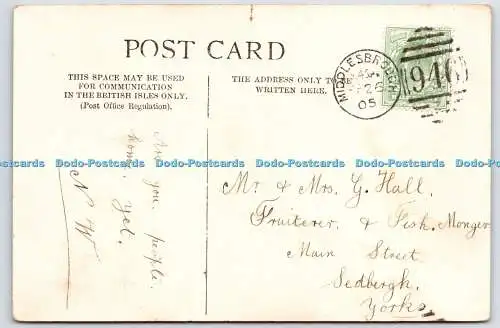 POST CARD
THIS SPACE MAY BE USED
FOR COMMUNICATION
IN THE BRITISH ISLES ONLY.
(Post Office Regulation).
THE ADDRESS ONLY TO BE
WRITTEN HERE.
MIDDLESBROUGH
26
05
946
Are you people
home yet.
N W
Mr. & Mrs. G. Hall,
Fruiterer, & Fish. Monger
Main Street
Sedbergh,
Yorks
Dodo-Postcards Dodo-Postcards Dodo-Postcards Dodo-Postcards Dodo-Postcards Dodo-Postcards Dodo-Postcards